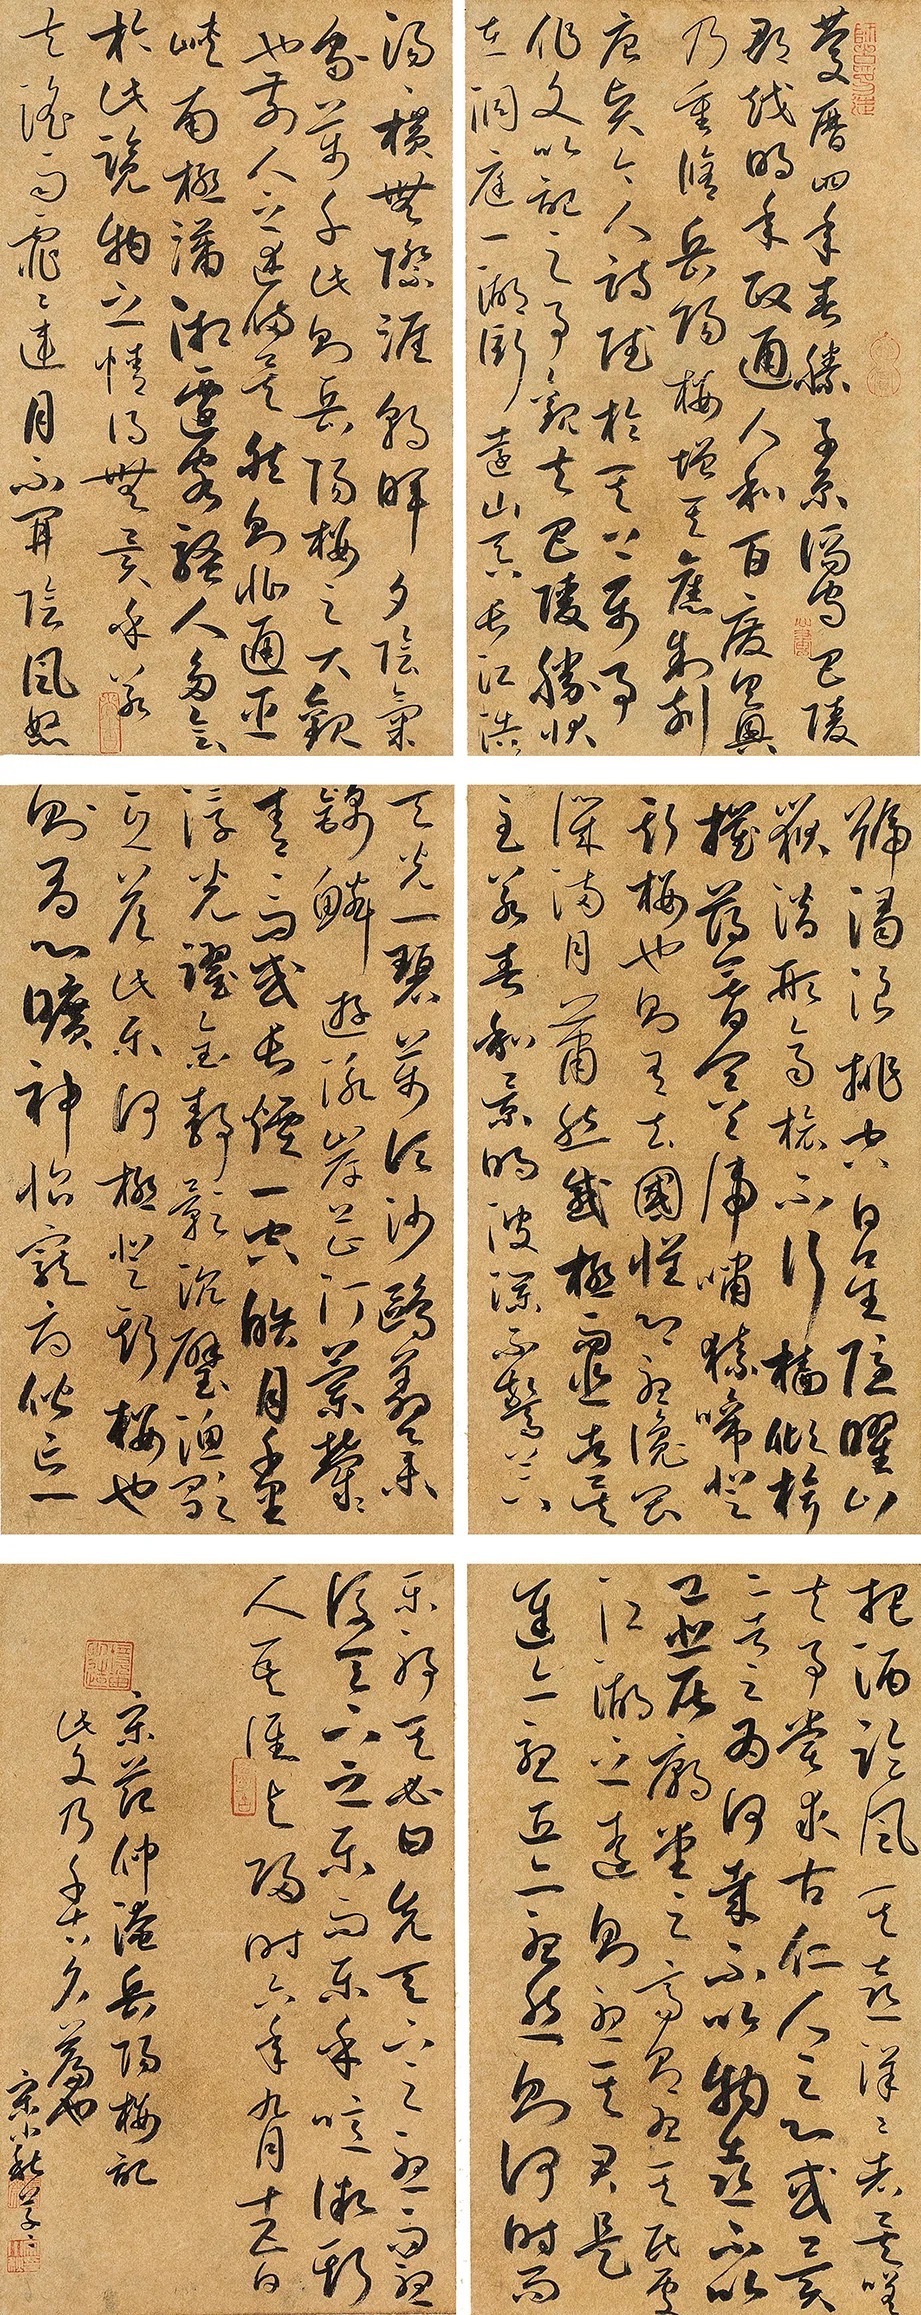 慶曆四年春滕子京謫守巴陵
郡越明年政通人和百廢具興
乃重修岳陽樓增其舊制刻
唐賢今人詩賦於其上屬予
作文以記之予觀夫巴陵勝狀
在洞庭一湖銜遠山吞長江浩
湯湯橫無際涯朝暉夕陰氣
象萬千此則岳陽樓之大觀
也前人之述備矣然則北通巫
峽南極瀟湘遷客騷人多會
於此覽物之情得無異乎若
夫淫雨霏霏連月不開陰風怒
號濁浪排空日星隱曜山
嶽潛形商旅不行檣傾楫
摧薄暮冥冥虎嘯猿啼登
斯樓也則有去國懷鄉憂讒畏
譏滿目蕭然感極而悲者矣
至若春和景明波瀾不驚上下
天光一碧萬頃沙鷗翔集
錦鱗游泳岸芷汀蘭鬱鬱
青青而或長煙一空皓月千里
浮光躍金靜影沉璧漁歌
互答此樂何極登斯樓也
則有心曠神怡寵辱偕忘
把酒臨風其喜洋洋者矣嗟
夫予嘗求古仁人之心或異
二者之為何哉不以物喜不以
己悲居廟堂之高則憂其民處
江湖之遠則憂其君是
進亦憂退亦憂然則何時而
樂耶其必曰先天下之憂而憂
後天下之樂而樂乎噫微斯
人吾誰與歸時六年九月十五日
宋范仲淹岳陽樓記
此文乃千古名篇也